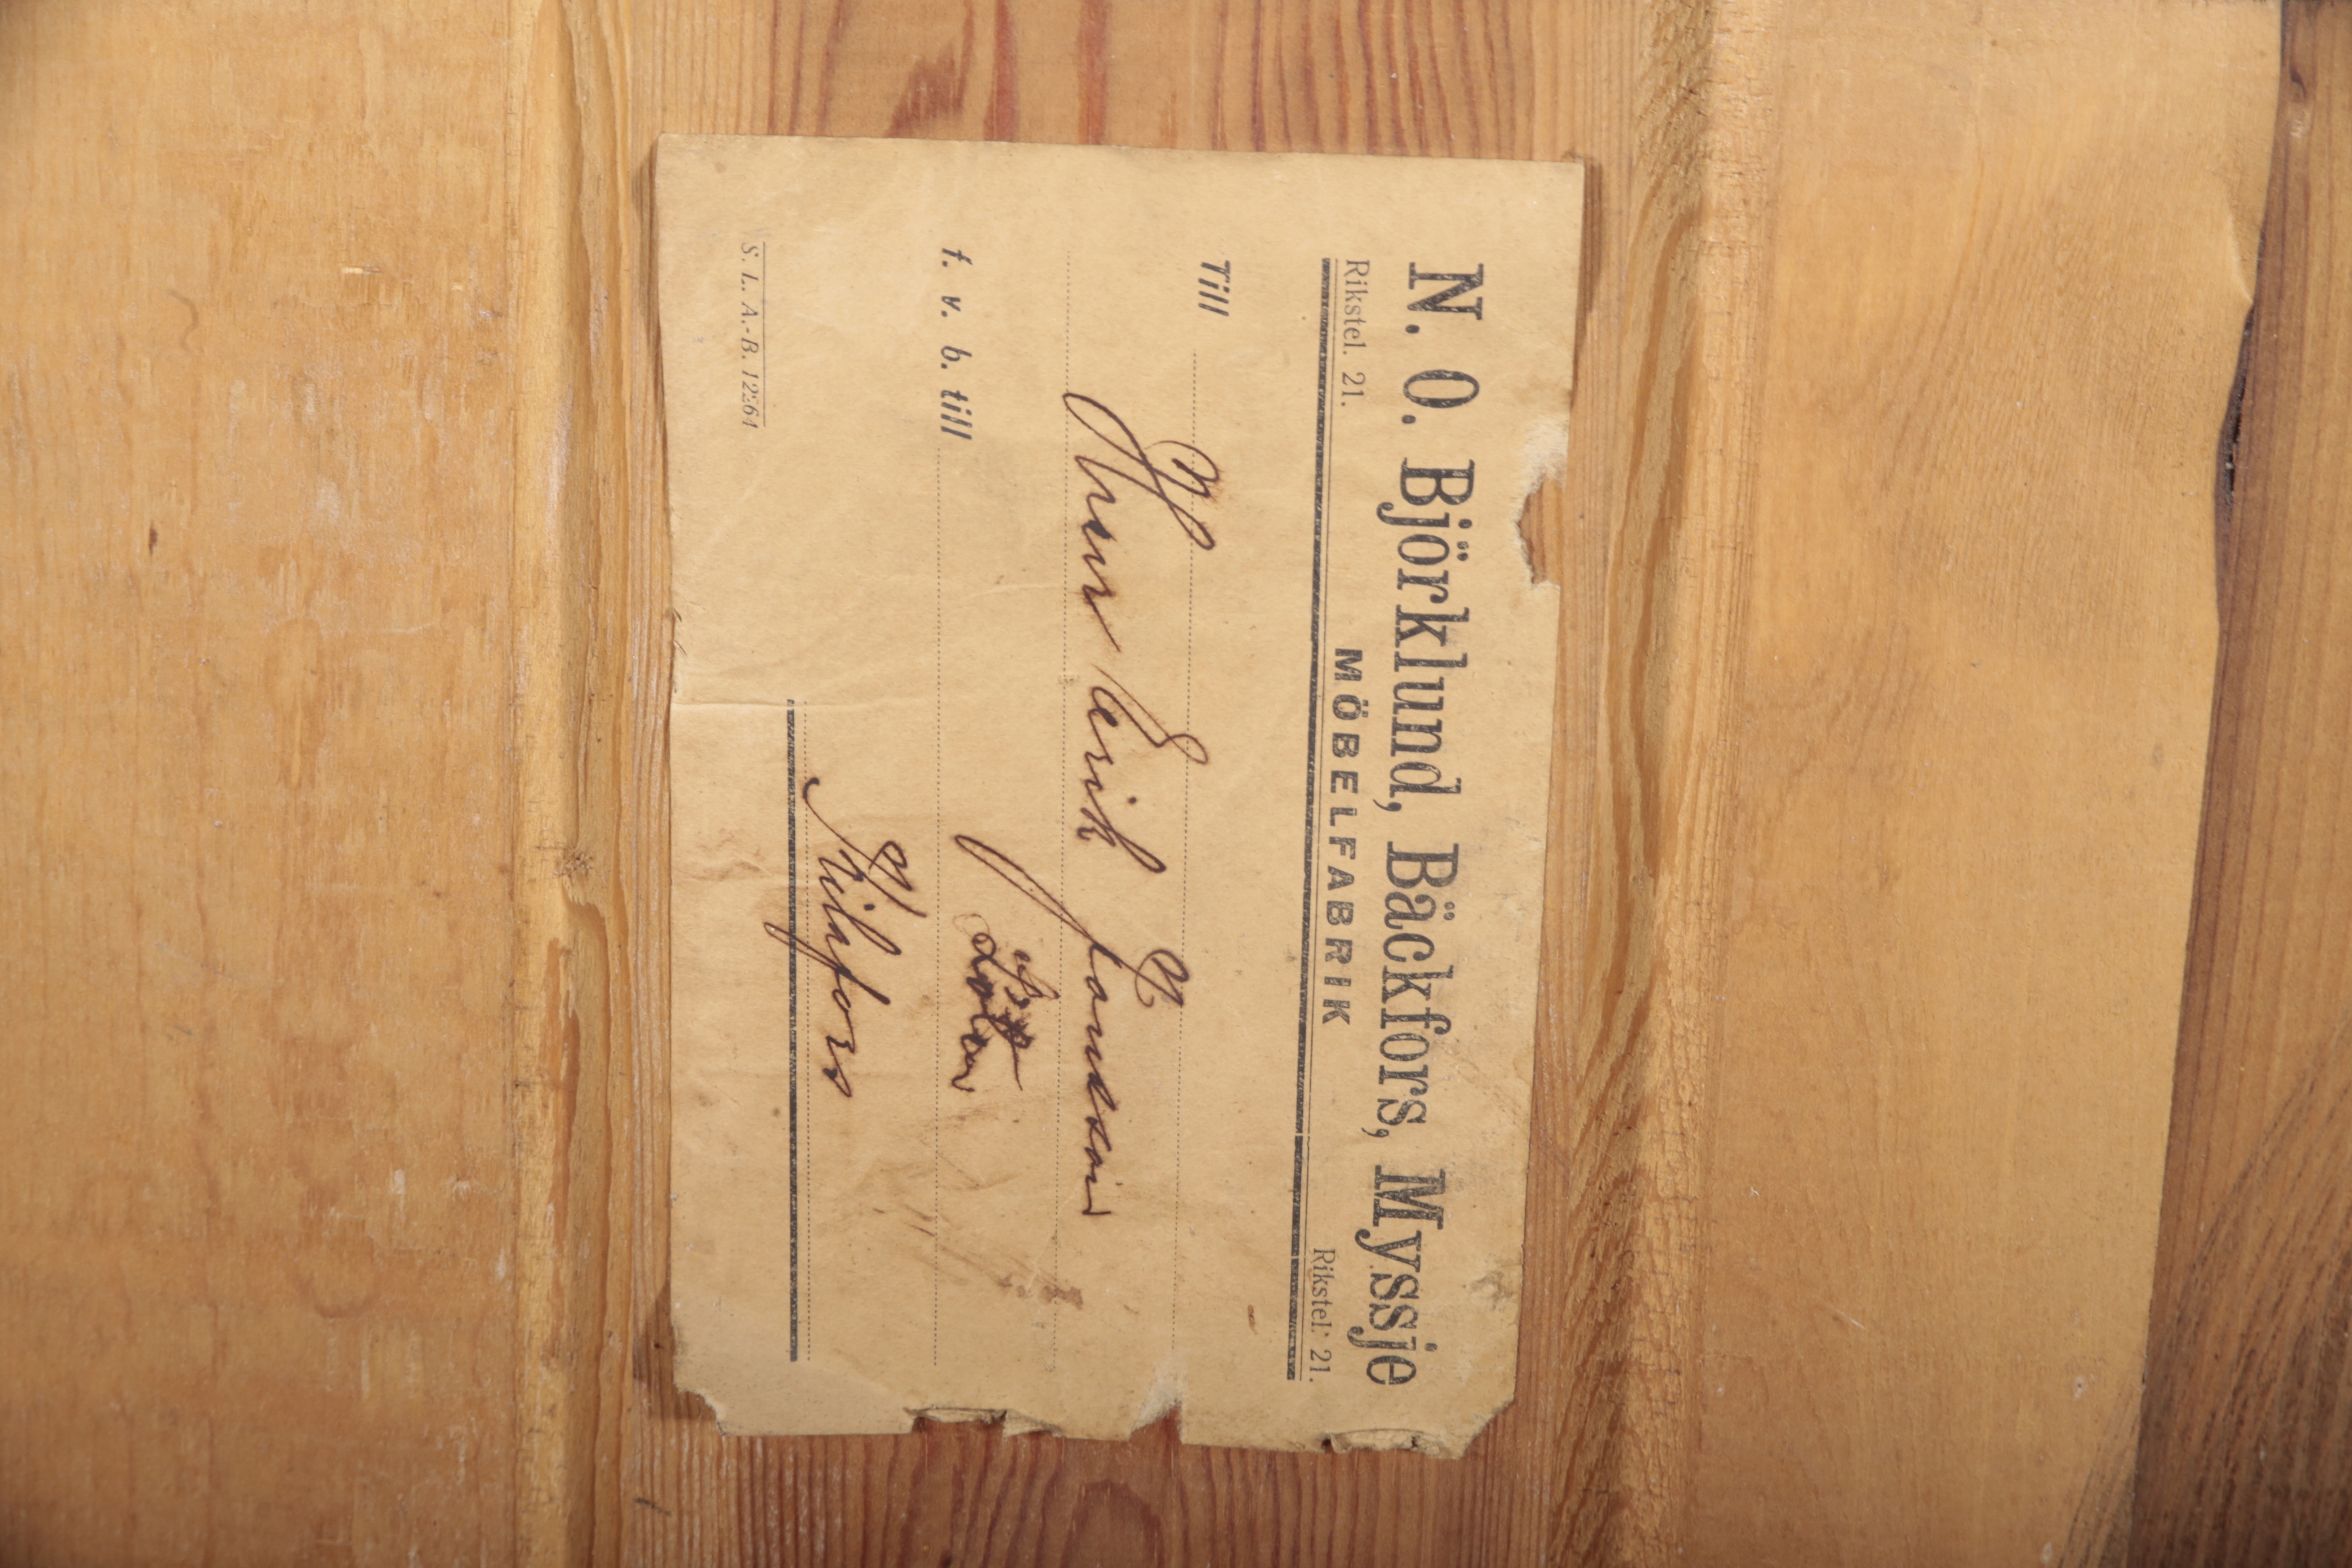 N. O. Björklund, Bäckfors, Myssje
Rikstel. 21. MÖBELFABRIK Rikstel. 21.
Till
Herr Erik Jonsson
f. v. b. till
Kilafors
S. L. A.-B. 12261